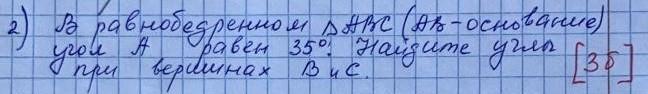 2) В равнобедренном △ABC (AB-основание)
угол A равен 35°. Найдите углы
при вершинах B и C. [3б]